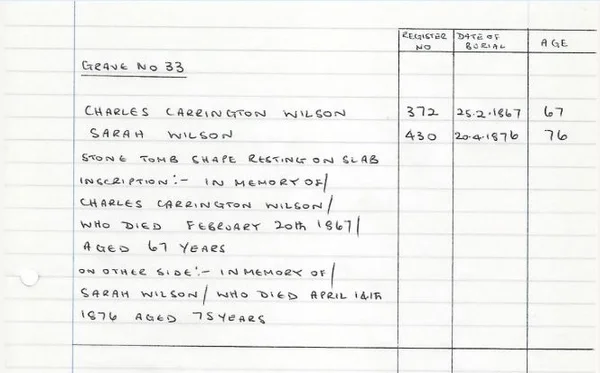 REGISTER NO DATE OF BURIAL AGE
GRAVE NO 33
CHARLES CARRINGTON WILSON 372 25.2.1867 67
SARAH WILSON 430 20.4.1876 76
STONE TOMB SHAPE RESTING ON SLAB
INSCRIPTION:- IN MEMORY OF/
CHARLES CARRINGTON WILSON/
WHO DIED FEBRUARY 20th 1867/
AGED 67 YEARS
ON OTHER SIDE:- IN MEMORY OF/
SARAH WILSON/ WHO DIED APRIL 14TH
1876 AGED 75 YEARS